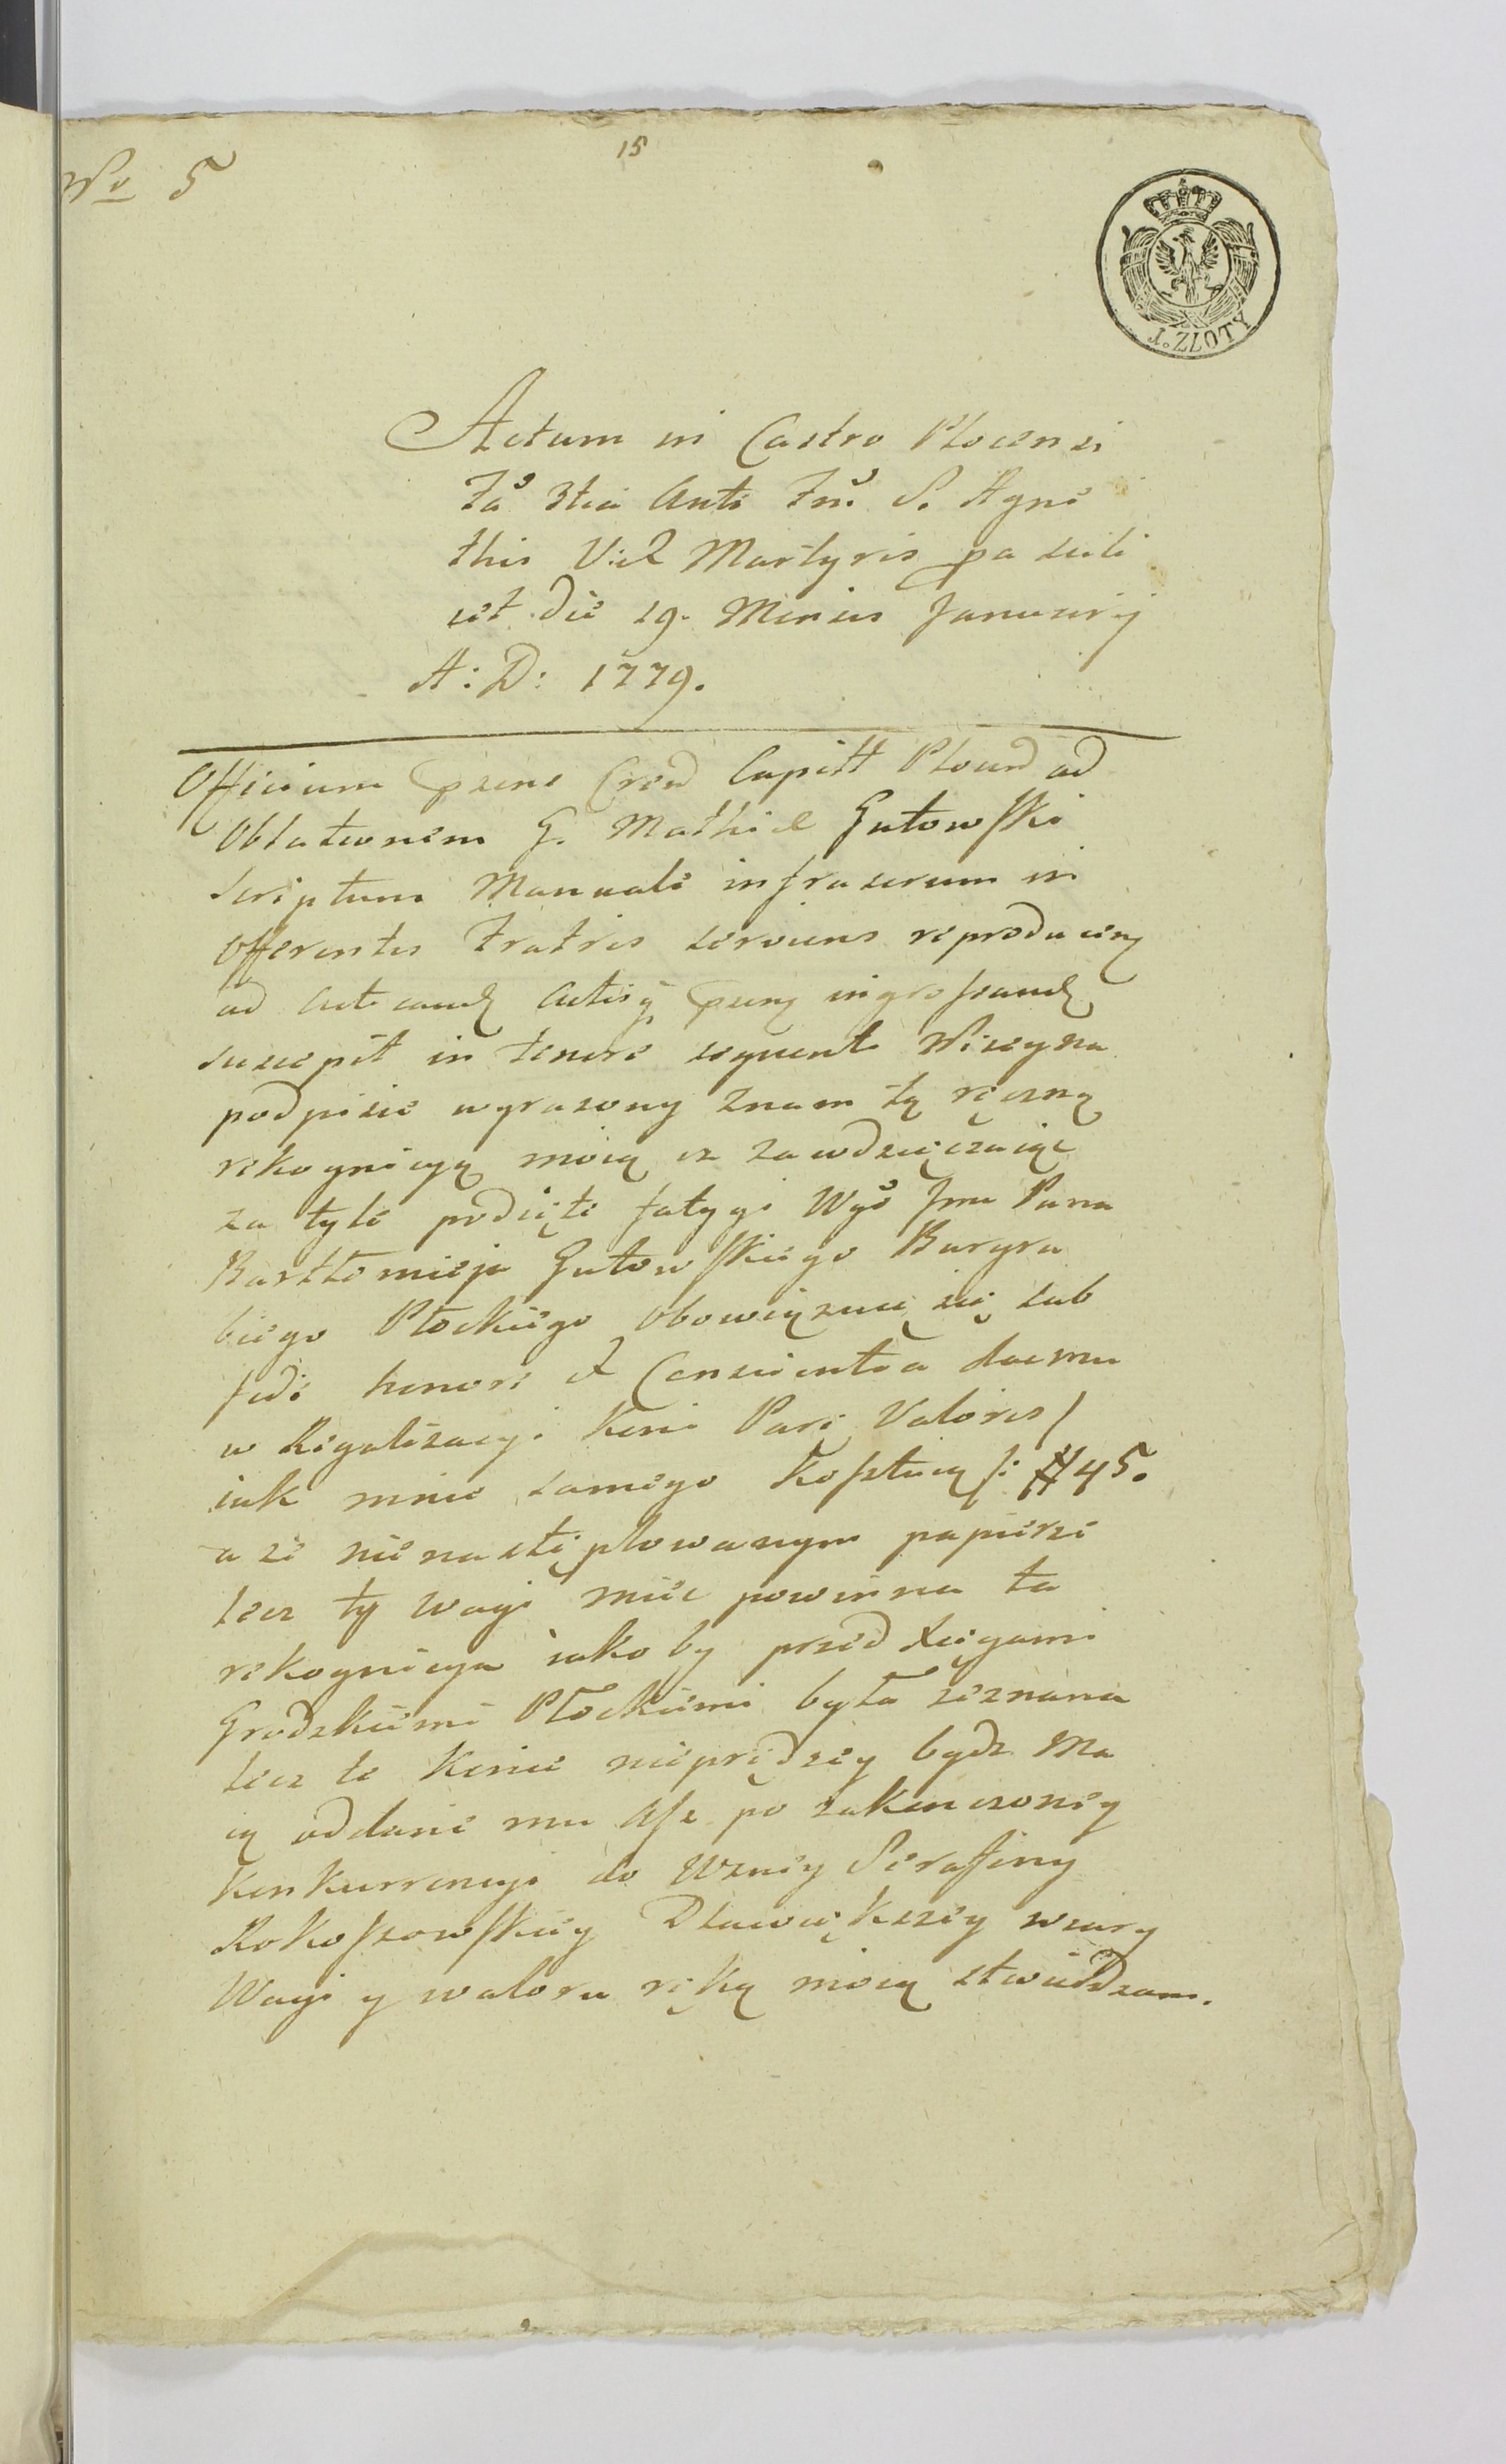 No 5
15
1. ZLOTY
Actum in Castro Plocensi
fa 3tia Ante Fm. S. Agne
this V: & Martyris pa scili
cet die 19. Mensis Januarij
A: D: 1779.
Officium psens Crend Capitt Plocen ad
Oblationem G. Mathiæ Gutowski
scriptum Manuale infraserum in
Offerentis fratris serviens reproducens
ad acticand actisq psens ingrossand
suscepit in tenore sequenti Niżey na
podpisie wyrazony znam tę ręczną
rekognicyą moią iż zawdzięczaiąc
za tyle podięte fatygi Wgo Jmc Pana
Bartłomieja Gutowskiego Burgra
biego Płockiego obowięzuię się sub
fide honore et Conscientia dać mu
w Regalizacyi Konie Pari Valoris /
iak mnie samego kosztuią /: # 45.
a że nie na stęplowanym papierze
lecz tę wagę mieć powinna ta
rekognicya iako by przed Xięgami
Grodzkiemi Płockiemi była zeznana
lecz te Konie nieprędzey bydz ma
ią oddane mu asz po zakonczoney
konkurrencyi do Wzney Serafiny
Rokoszowskiey Dla większey wiary
Wagi y waloru ręką moią ztwierdzam.